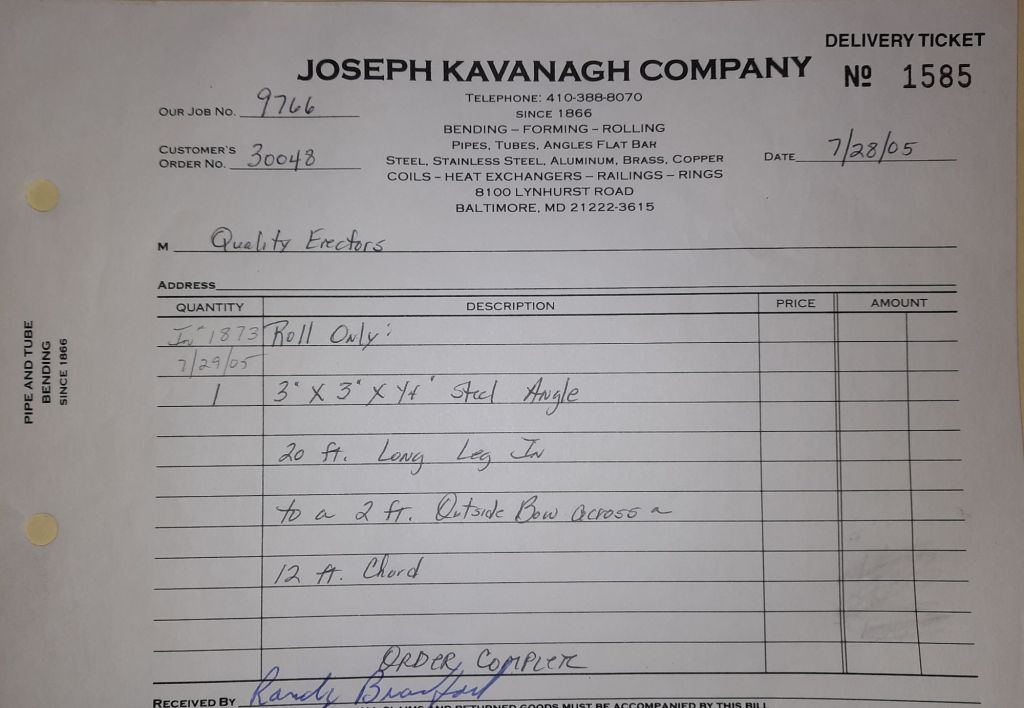 DELIVERY TICKET
JOSEPH KAVANAGH COMPANY
Nº 1585
TELEPHONE: 410-388-8070
OUR JOB NO. 9766
SINCE 1866
BENDING – FORMING – ROLLING
PIPES, TUBES, ANGLES FLAT BAR
CUSTOMER'S
ORDER NO. 30048
STEEL, STAINLESS STEEL, ALUMINUM, BRASS, COPPER
DATE 7/28/05
COILS – HEAT EXCHANGERS – RAILINGS – RINGS
8100 LYNHURST ROAD
BALTIMORE, MD 21222-3615
M Quality Erectors
ADDRESS
QUANTITY DESCRIPTION PRICE AMOUNT
1873 Roll Only:
7/29/05
1 3" X 3" X 1/4" Steel Angle
20 ft. Long Leg In
to a 2 ft. Outside Bow across a
12 ft. Chord
ORDER COMPLETE
RECEIVED BY Randy
ALL CLAIMS AND RETURNED GOODS MUST BE ACCOMPANIED BY THIS BILL
PIPE AND TUBE
BENDING
SINCE 1866